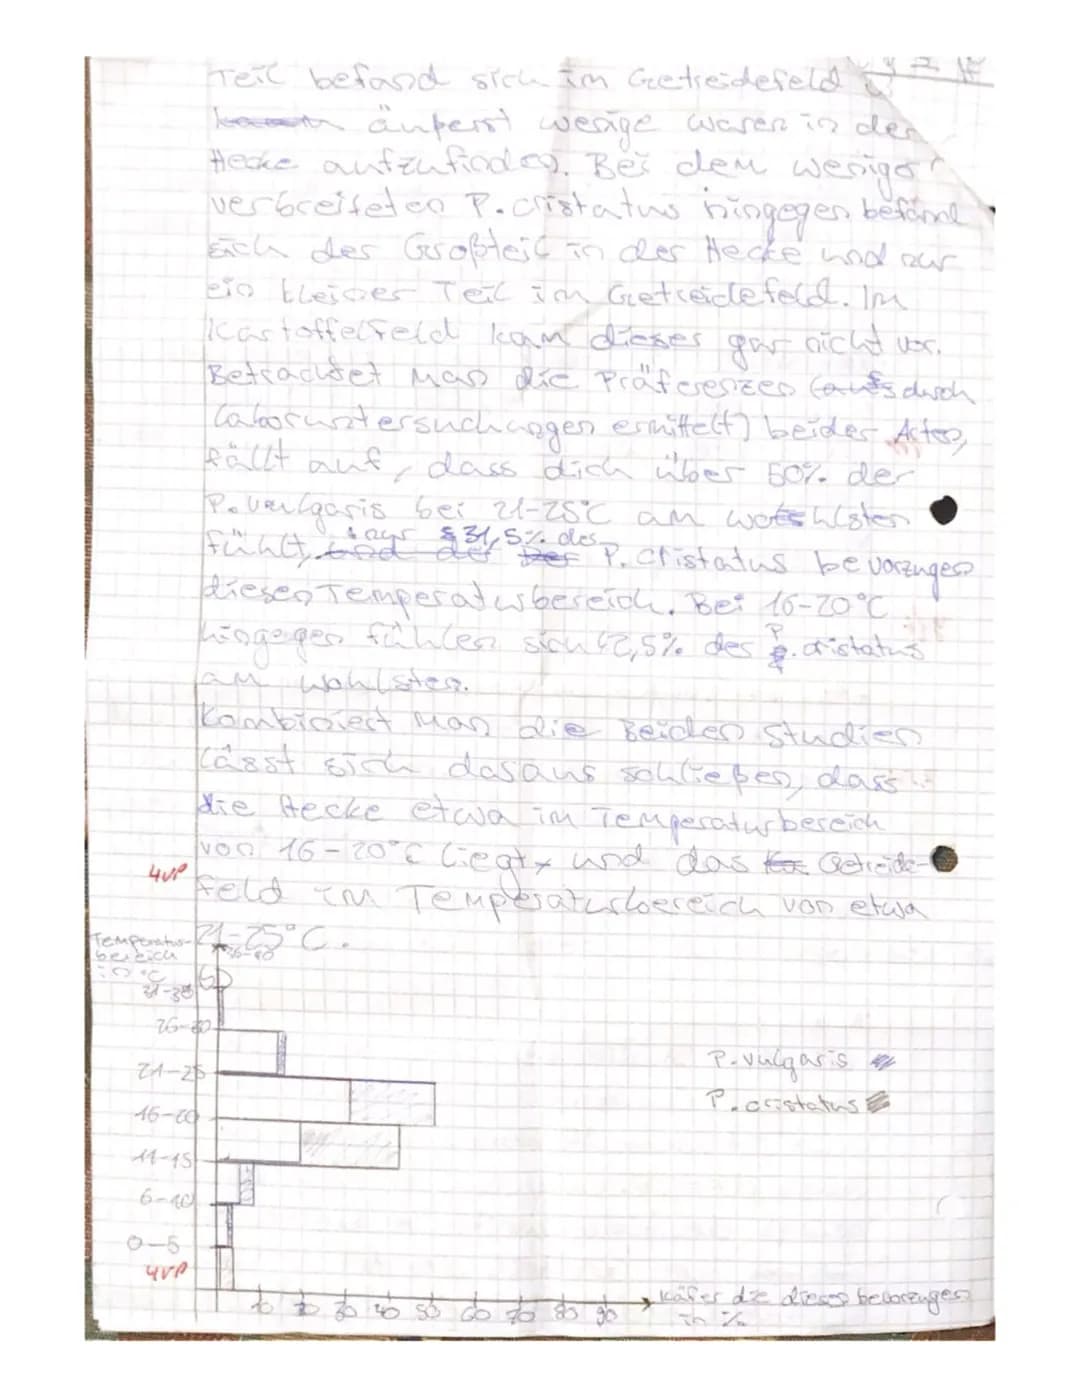 Teil befand sich im Getreidefeld
äuperst wenige waren in der
Hecke aufzufinden. Bei dem weniger
verbreiteten P. cristatus hingegen befand
sich der Großteil in der Hecke und nur
ein kleiner Teil im Getreidefeld. Im
Kartoffelfeld kam dieser gar nicht vor.
Betrachtet man die Präferenzen (durch
Laboruntersuchungen ermittelt) beider Arten,
fällt auf, dass dich über 50% der
P. vulgaris bei 21-25°C am wohlsten
fühlt, nur 31,5% des P. cristatus bevorzugen
diesen Temperaturbereich. Bei 16-20°C
hingegen fühlen sich 42,5% des P. cristatus
am wohlsten.
Kombiniert man die Beiden Studien
lässt sich daraus schließen, dass
die Hecke etwa im Temperaturbereich
von 16-20°C liegt, und das Getreide-
4VP
feld im Temperaturbereich von etwa
21-25°C.
Temperatur-
bereich
in °C
36-40
31-35
26-30
21-25
16-20
11-15
6-10
0-5
4VP
P. vulgaris
P. cristatus
10 20 30 40 50 60 70 80 90
Käfer die diesen bevorzugen
in %